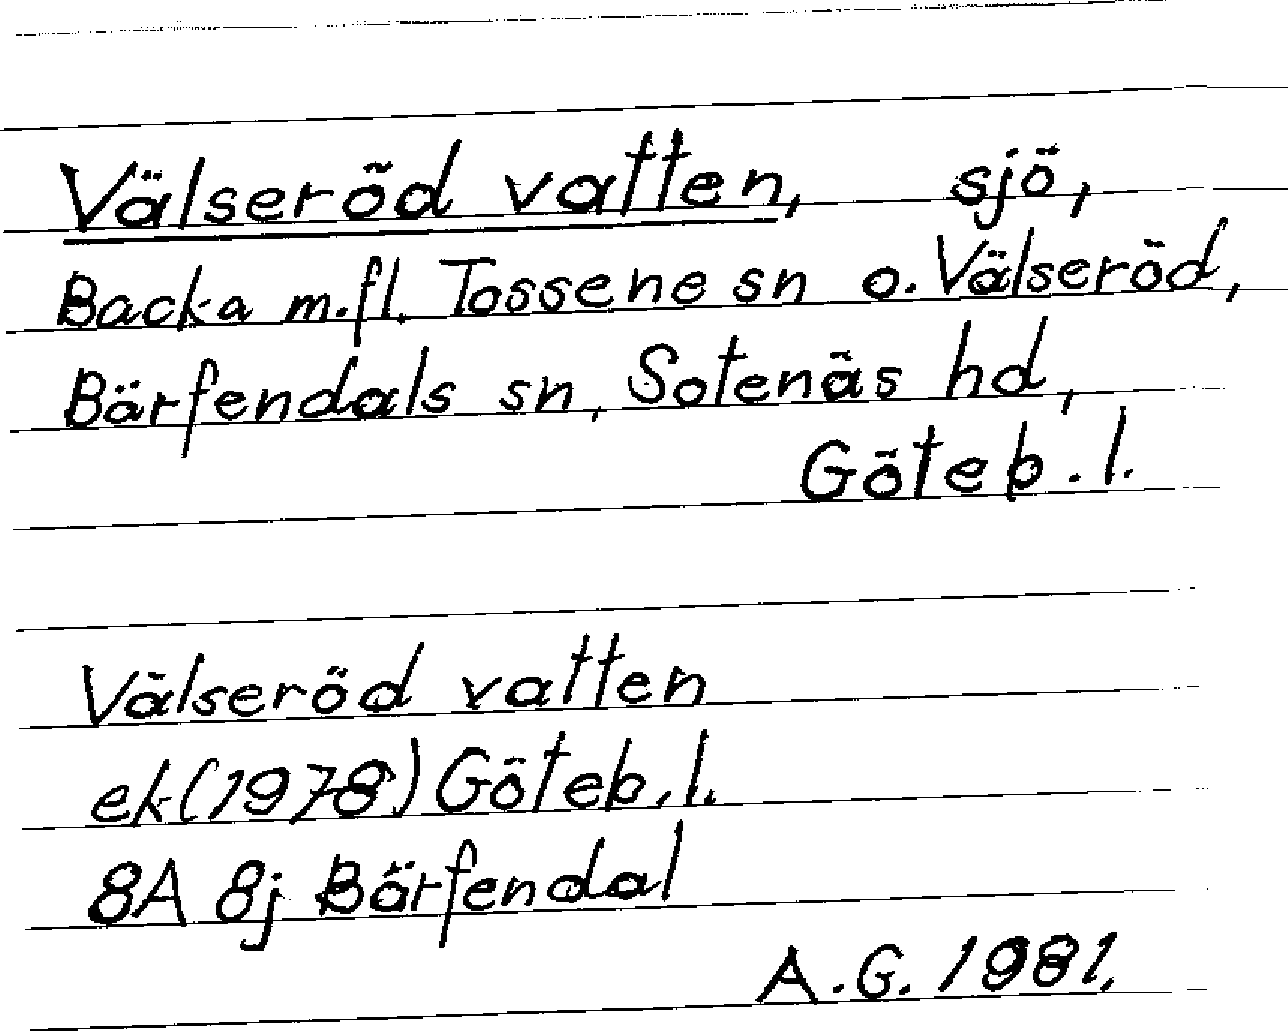 Välseröd vatten, sjö,
Backa m.fl. Tossene sn o. Välseröd,
Bärfendals sn, Sotenäs hd,
Göteb. l.
Välseröd vatten
ek (1978) Göteb. l.
8A 8j Bärfendal
A.G. 1981.